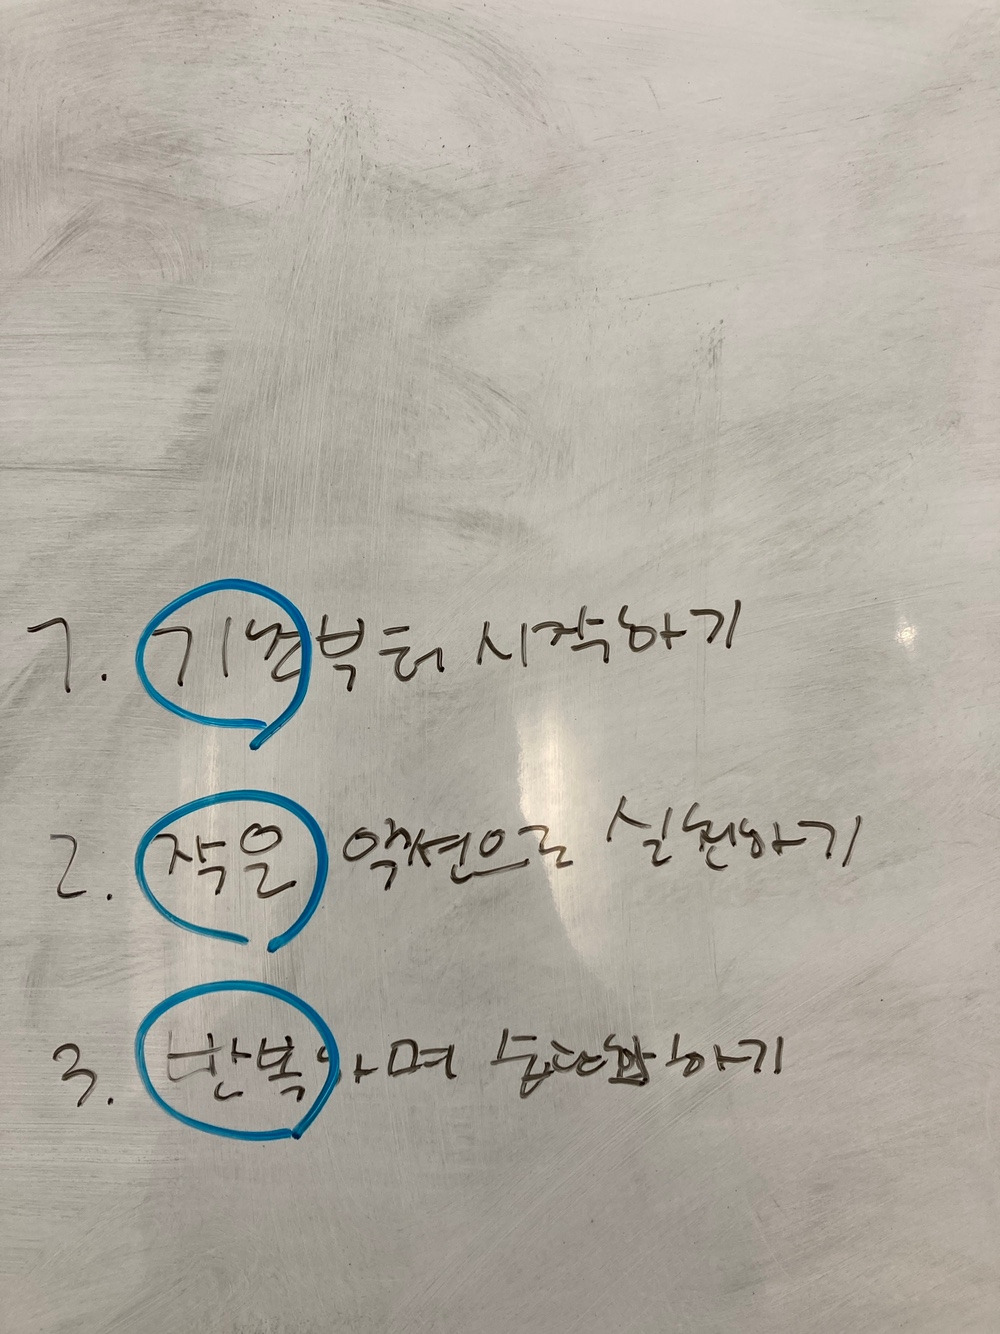 1. 기초부터 시작하기
2. 작은 액션으로 실천하기
3. 반복하며